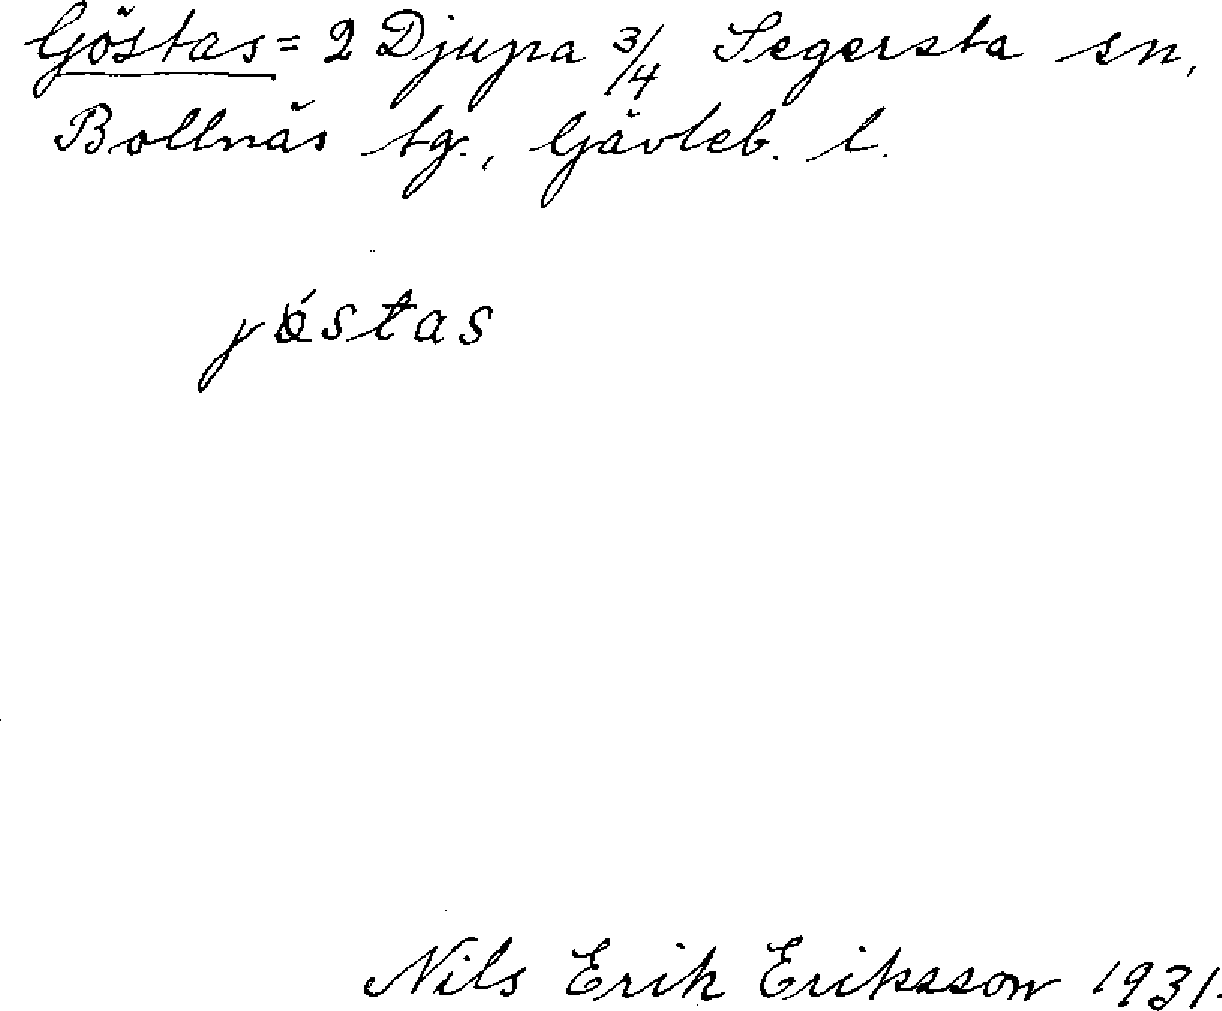 Göstas = 2 Djupa 3/4 Segersta sn,
Bollnäs tg., Gävleb. l.
Nils Erik Eriksson 1931.